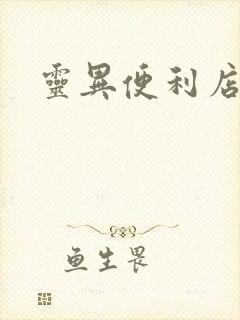 靈異便利店
鱼生畏